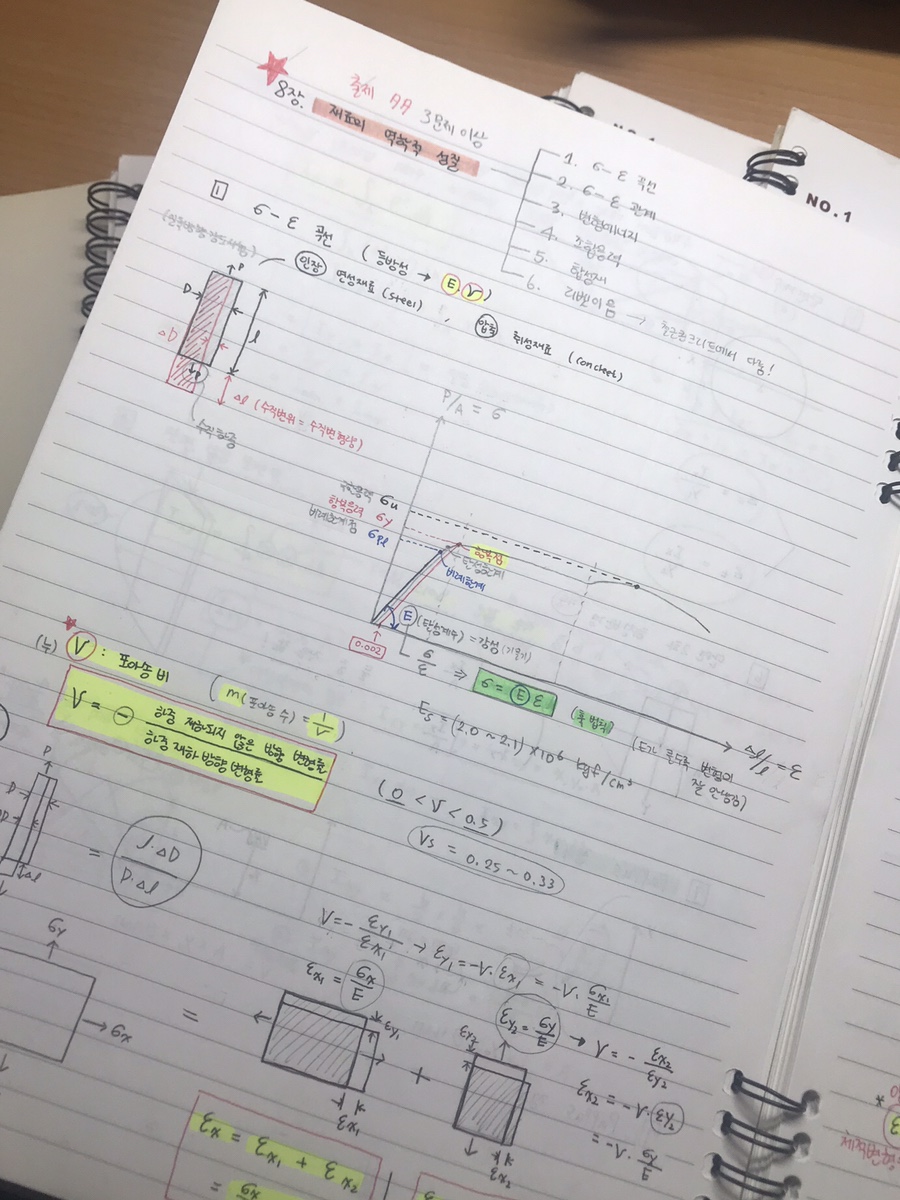 출제 AA 3문제 이상
8장. 재료의 역학적 성질
1. σ-ε 곡선
2. σ-ε 관계
3. 변형에너지
4. 조합응력
5. 합성재
6. 리벳이음 → 철근콘크리트에서 다룸!
NO.1
1 σ-ε 곡선 (등방성 → E, ν)
인장 연성재료 (steel), 압축 취성재료 (concleet)
P
D
l
ΔD
P
Δl (수직변위 = 수직변형량)
수직하중
P/A = σ
극한응력 σu
항복응력 σy
비례한계점 σpl
항복점
탄성한계
비례한계
0.002
E (탄성계수) = 강성 (기울기)
σ/ε ⇒ σ = E ε (훅 법칙)
Δl/l = ε
Es = (2.0 ~ 2.1) × 10⁶ kgf/cm²
(E가 클수록 변형이 잘 안생김)
(뉴) ν : 포아송 비 (m(포아송 수) = 1/ν)
ν = ⊖ 하중 재하되지 않은 방향 변형률 / 하중 재하 방향 변형률
(0 < ν < 0.5)
νs = 0.25 ~ 0.33
P
D
Δl
= l·ΔD / D·Δl
ν = - εy₁/εx₁ → εy₁ = -ν·εx₁ = -ν·σx₁/E
εx₁ = σx/E
σy
σx
=
εy₁
εx₁
+
εy₂
εx₂
εy₂ = σy/E → ν = - εx₂/εy₂
εx₂ = -ν·εy₂
= -ν·σy/E
εx = εx₁ + εx₂
= σx